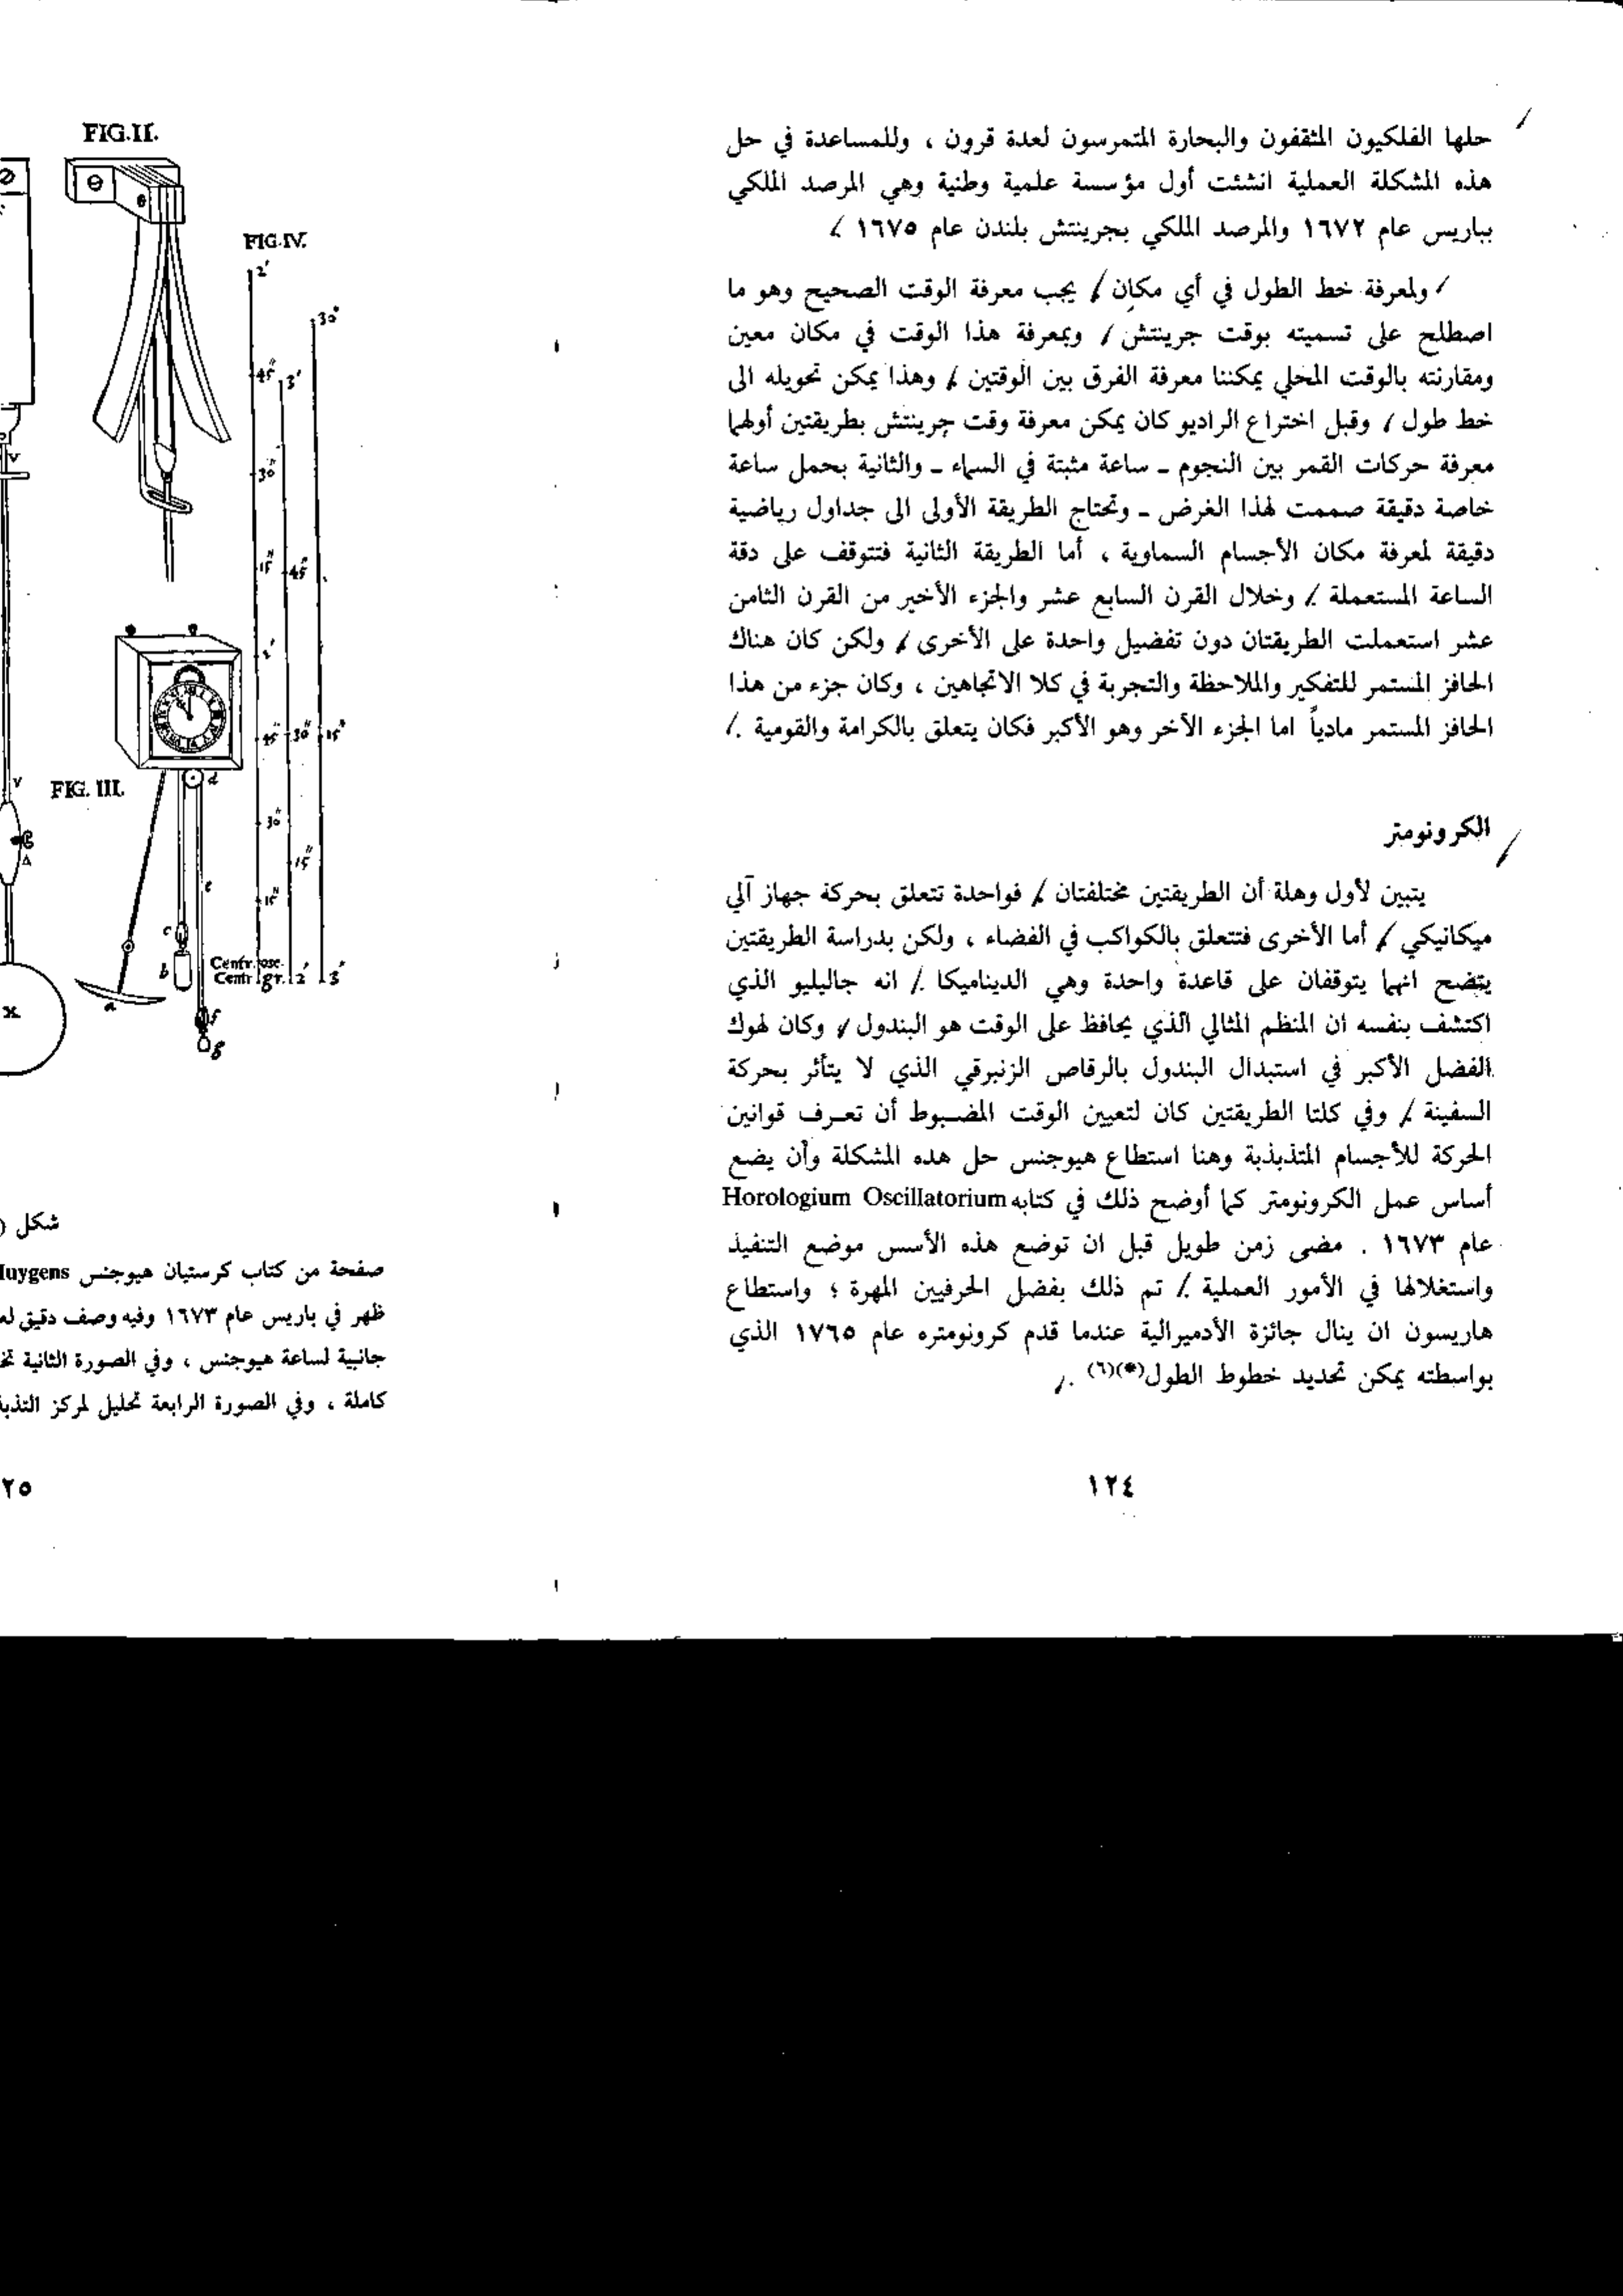 حلها الفلكيون المثقفون والبحارة المتمرسون لعدة قرون ، وللمساعدة في حل
هذه المشكلة العملية انشئت أول مؤسسة علمية وطنية وهي المرصد الملكي
بباريس عام ١٦٧٢ والمرصد الملكي بجرينتش بلندن عام ١٦٧٥ .
ولمعرفة خط الطول في أي مكان يجب معرفة الوقت الصحيح وهو ما
اصطلح على تسميته بوقت جرينتش وبمعرفة هذا الوقت في مكان معين
ومقارنته بالوقت المحلي يمكننا معرفة الفرق بين الوقتين ، وهذا يمكن تحويله الى
خط طول ، وقبل اختراع الراديو كان يمكن معرفة وقت جرينتش بطريقتين أولهما
معرفة حركات القمر بين النجوم ـ ساعة مثبتة في السماء ـ والثانية بحمل ساعة
خاصة دقيقة صممت لهذا الغرض ـ وتحتاج الطريقة الأولى الى جداول رياضية
دقيقة لمعرفة مكان الأجسام السماوية ، أما الطريقة الثانية فتتوقف على دقة
الساعة المستعملة . وخلال القرن السابع عشر والجزء الأخير من القرن الثامن
عشر استعملت الطريقتان دون تفضيل واحدة على الأخرى ، ولكن كان هناك
الحافز المستمر للتفكير والملاحظة والتجربة في كلا الاتجاهين ، وكان جزء من هذا
الحافز المستمر مادياً اما الجزء الآخر وهو الأكبر فكان يتعلق بالكرامة والقومية .
الكرونومتر
يتبين لأول وهلة أن الطريقتين مختلفتان ، فواحدة تتعلق بحركة جهاز آلي
ميكانيكي ، أما الأخرى فتتعلق بالكواكب في الفضاء ، ولكن بدراسة الطريقتين
يتضح انهما يتوقفان على قاعدة واحدة وهي الديناميكا . انه جاليليو الذي
اكتشف بنفسه ان المنظم المثالي الذي يحافظ على الوقت هو البندول ، وكان لهوك
الفضل الأكبر في استبدال البندول بالرقاص الزنبرقي الذي لا يتأثر بحركة
السفينة . وفي كلتا الطريقتين كان لتعيين الوقت المضبوط أن تعرف قوانين
الحركة للأجسام المتذبذبة وهنا استطاع هيوجنس حل هذه المشكلة وأن يضع
أساس عمل الكرونومتر كما أوضح ذلك في كتابه Horologium Oscillatorium
عام ١٦٧٣ . مضى زمن طويل قبل ان توضع هذه الأسس موضع التنفيذ
واستغلالها في الأمور العملية . تم ذلك بفضل الحرفيين المهرة ؛ واستطاع
هاريسون ان ينال جائزة الأدميرالية عندما قدم كرونومتره عام ١٧٦٥ الذي
بواسطته يمكن تحديد خطوط الطول(*)(٦) .
١٢٤
FIG.II.
FIG.IV.
2'
30"
45"
3'
30"
15"
45"
45"
30"
15"
FIG. III.
d
30"
15"
15"
c
b
Centr. osc.
Centr. gr.
2'
3'
a
f
g
V
V
A
x
شكل (
صفحة من كتاب كرستيان هيوجنس Huygens
ظهر في باريس عام ١٦٧٣ وفيه وصف دقيق
جانبية لساعة هيوجنس ، وفي الصورة الثانية
كاملة ، وفي الصورة الرابعة تحليل لمركز
٢٥